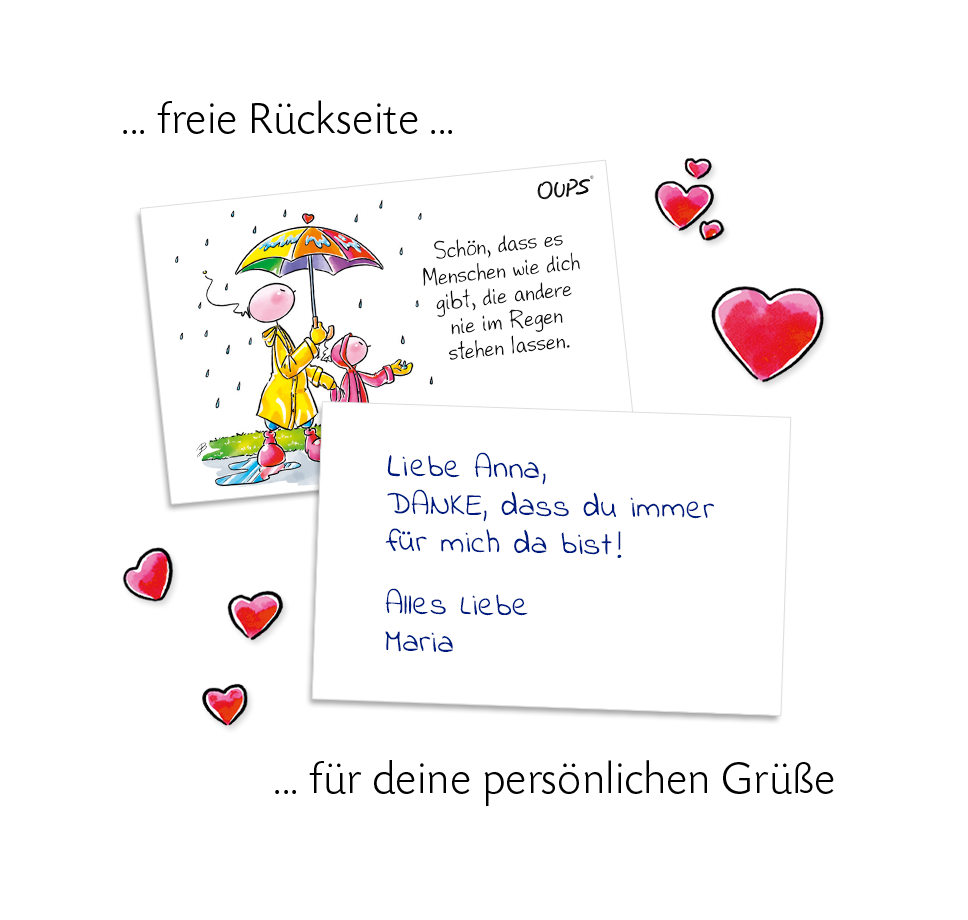 ... freie Rückseite ...
OUPS®
Schön, dass es
Menschen wie dich
gibt, die andere
nie im Regen
stehen lassen.
Liebe Anna,
DANKE, dass du immer
für mich da bist!
Alles Liebe
Maria
... für deine persönlichen Grüße